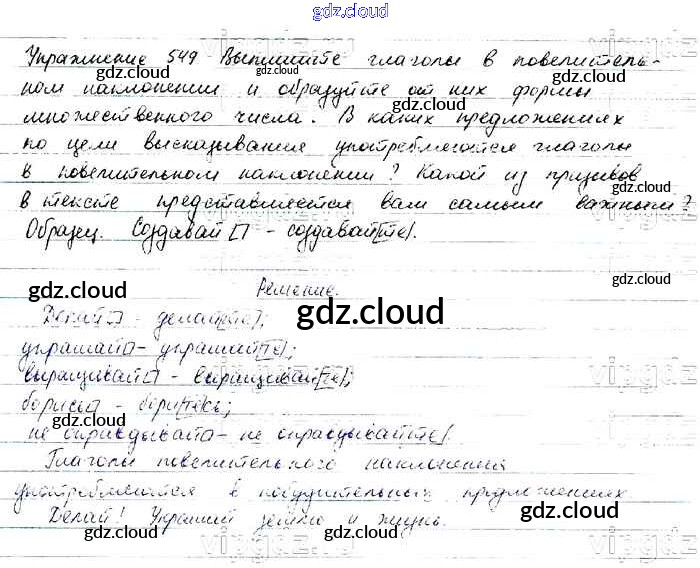 gdz.cloud
Упражнение 549. Выпишите глаголы в повелитель-
ном наклонении и образуйте от них формы
множественного числа. В каких предложениях
по цели высказывания употребляются глаголы
в повелительном наклонении? Какой из призывов
в тексте представляется вам самым важным?
Образец. Создавай□ - создавай[те].
Решение.
Делай□ - делай[те];
украшай□ - украшай[те];
выращивай□ - выращивай[те];
борись□ - бори[те]сь;
не оправдывай□ - не оправдывай[те].
Глаголы повелительного наклонения
употребляются в побудительных предложениях.
Делай! Украшай землю и жизнь.